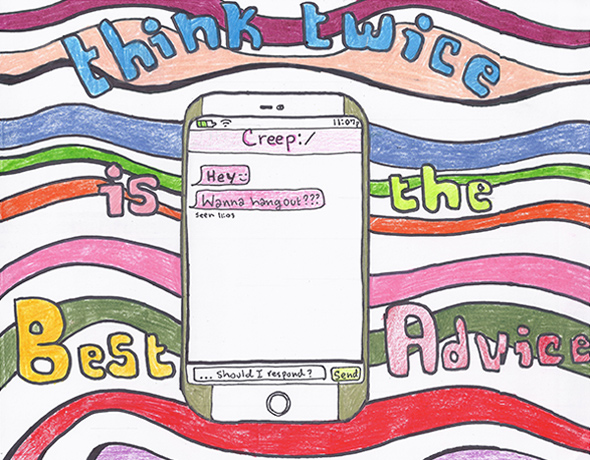 think twice
11:07
Creep:/
Hey :)
is the
Wanna hangout???
seen
Best Advice
... Should I respond? Send